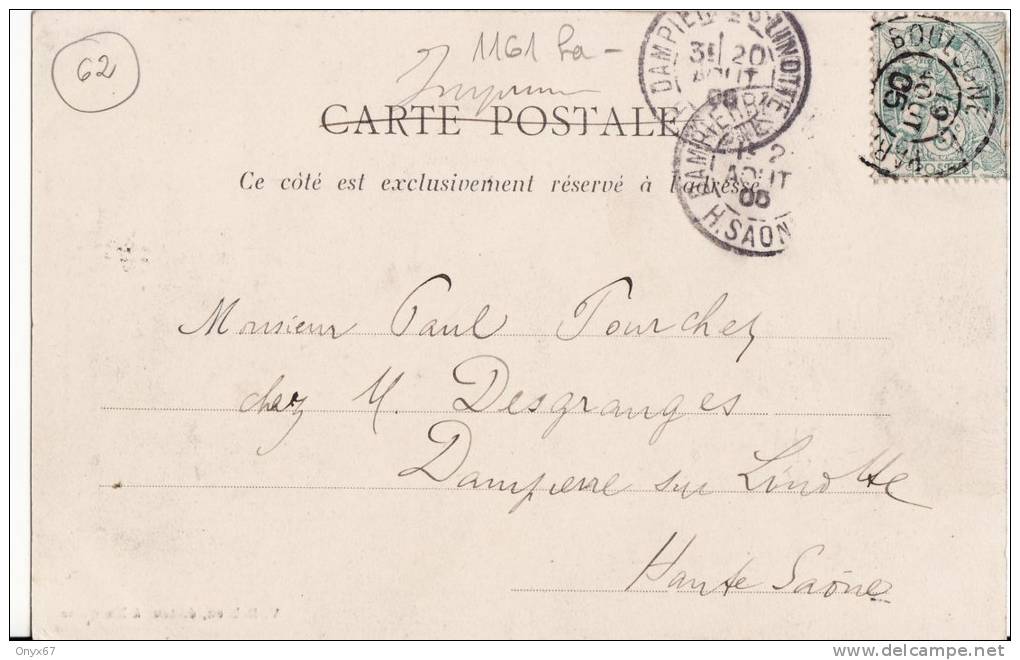 62
1161
CARTE POSTALE
Ce côté est exclusivement réservé à l'adresse
31 20
AOUT
DAMPIERRE
2
AOUT
05
H. SAON
BOULOGNE
19
AOUT
05
Monsieur Paul Tourchez
chez M. Desgranges
Dampierre sur Linotte
Haute Saône
Onyx67
delcampe.net